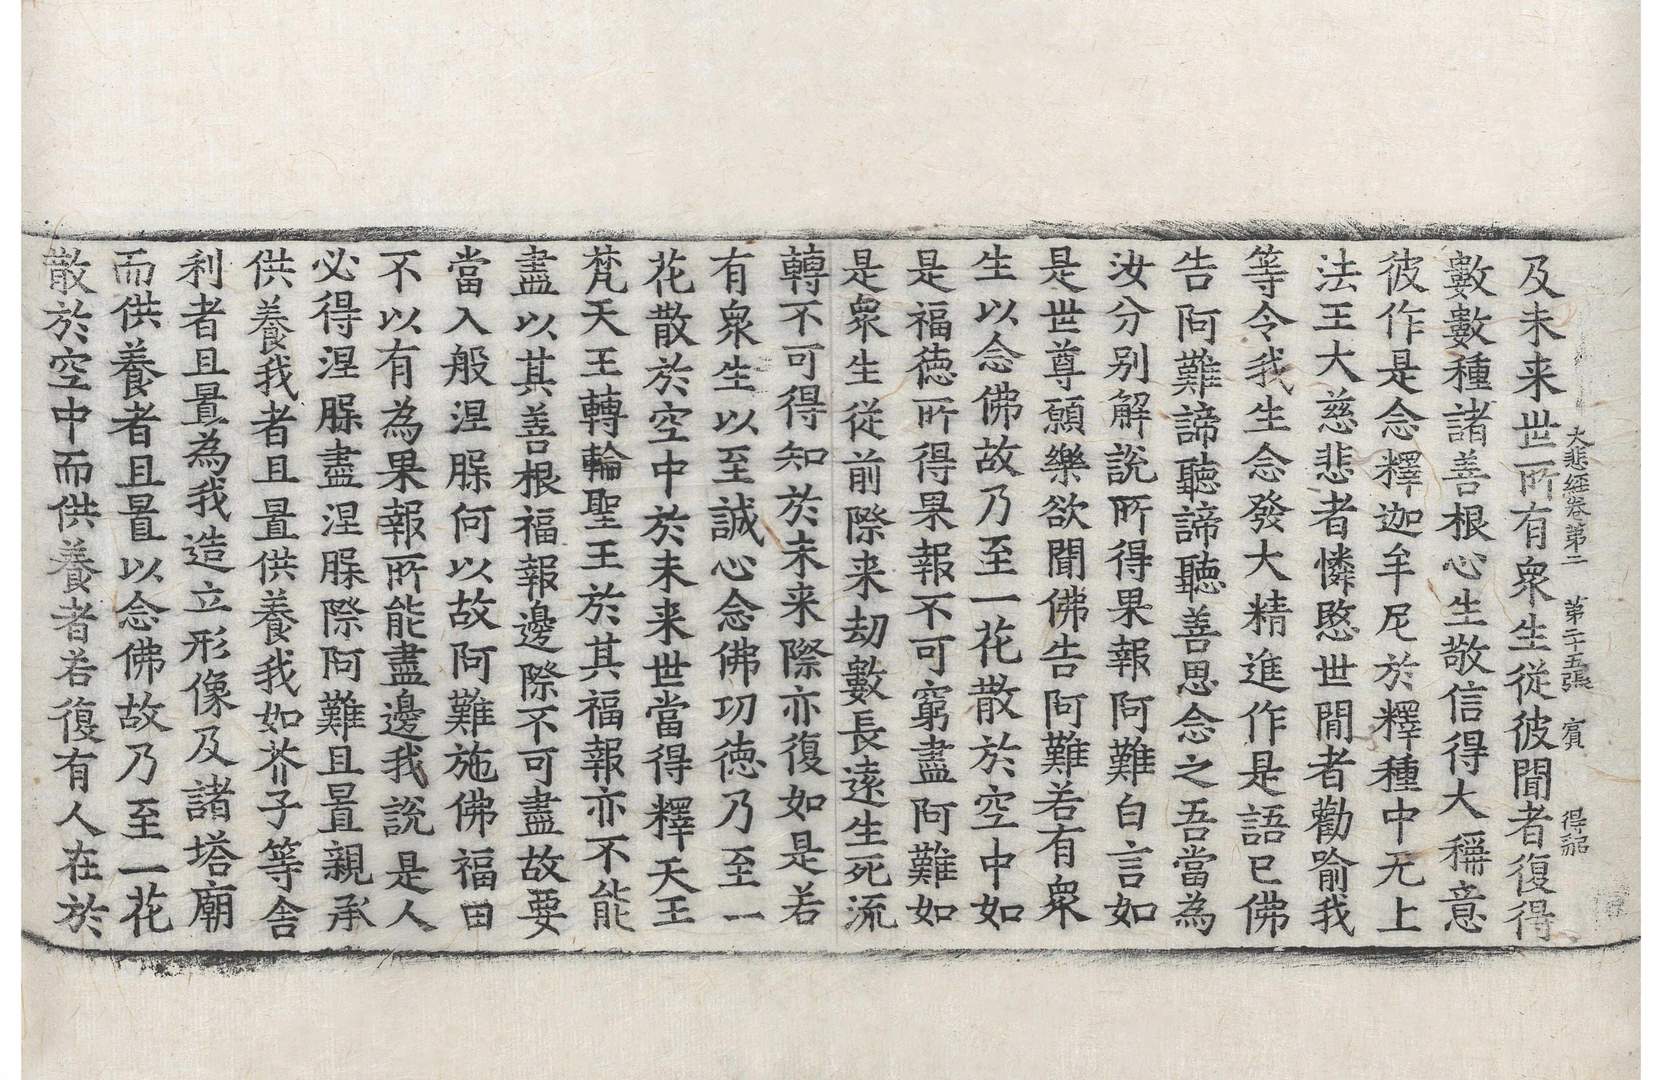 大悲經卷第二 第二十五張 賓 得紹
及未来世所有衆生從彼聞者復得
數數種諸善根心生敬信得大稱意
彼作是念釋迦牟尼於釋種中无上
法王大慈悲者憐愍世閒者勸喻我
等令我生念發大精進作是語已佛
告阿難諦聽諦聽善思念之吾當為
汝分別解說所得果報阿難白言如
是世尊願樂欲聞佛告阿難若有衆
生以念佛故乃至一花散於空中如
是福德所得果報不可窮盡阿難如
是衆生從前際来劫數長遠生死流
轉不可得知於未来際亦復如是若
有衆生以至誠心念佛功德乃至一
花散於空中於未来世當得釋天王
梵天王轉輪聖王於其福報亦不能
盡以其善根福報邊際不可盡故要
當入般涅槃何以故阿難施佛福田
不以有為果報所能盡邊我說是人
必得涅槃盡涅槃際阿難且置親承
供養我者且置供養我如芥子等舍
利者且置為我造立形像及諸塔廟
而供養者且置以念佛故乃至一花
散於空中而供養者若復有人在於